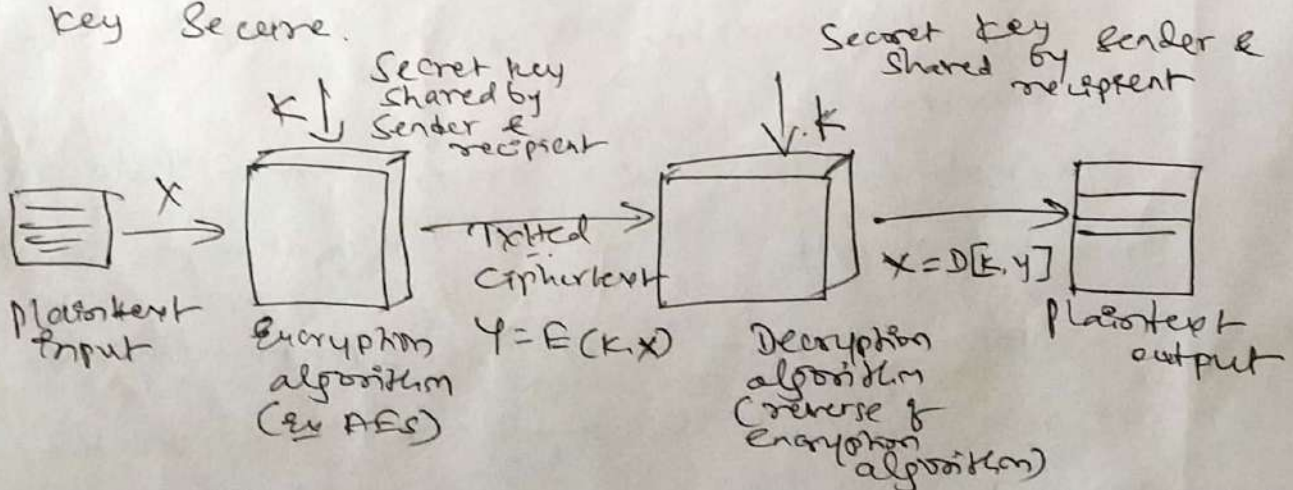 key Secure.
Secret key
shared by
Sender &
recipient
K
Secret key
shared by sender &
recipient
K
X
Txtted
Ciphertext
Y = E(K,X)
X = D[K,Y]
Plaintext
input
Encryption
algorithm
(ex AES)
Decryption
algorithm
(reverse of
encryption
algorithm)
Plaintext
output